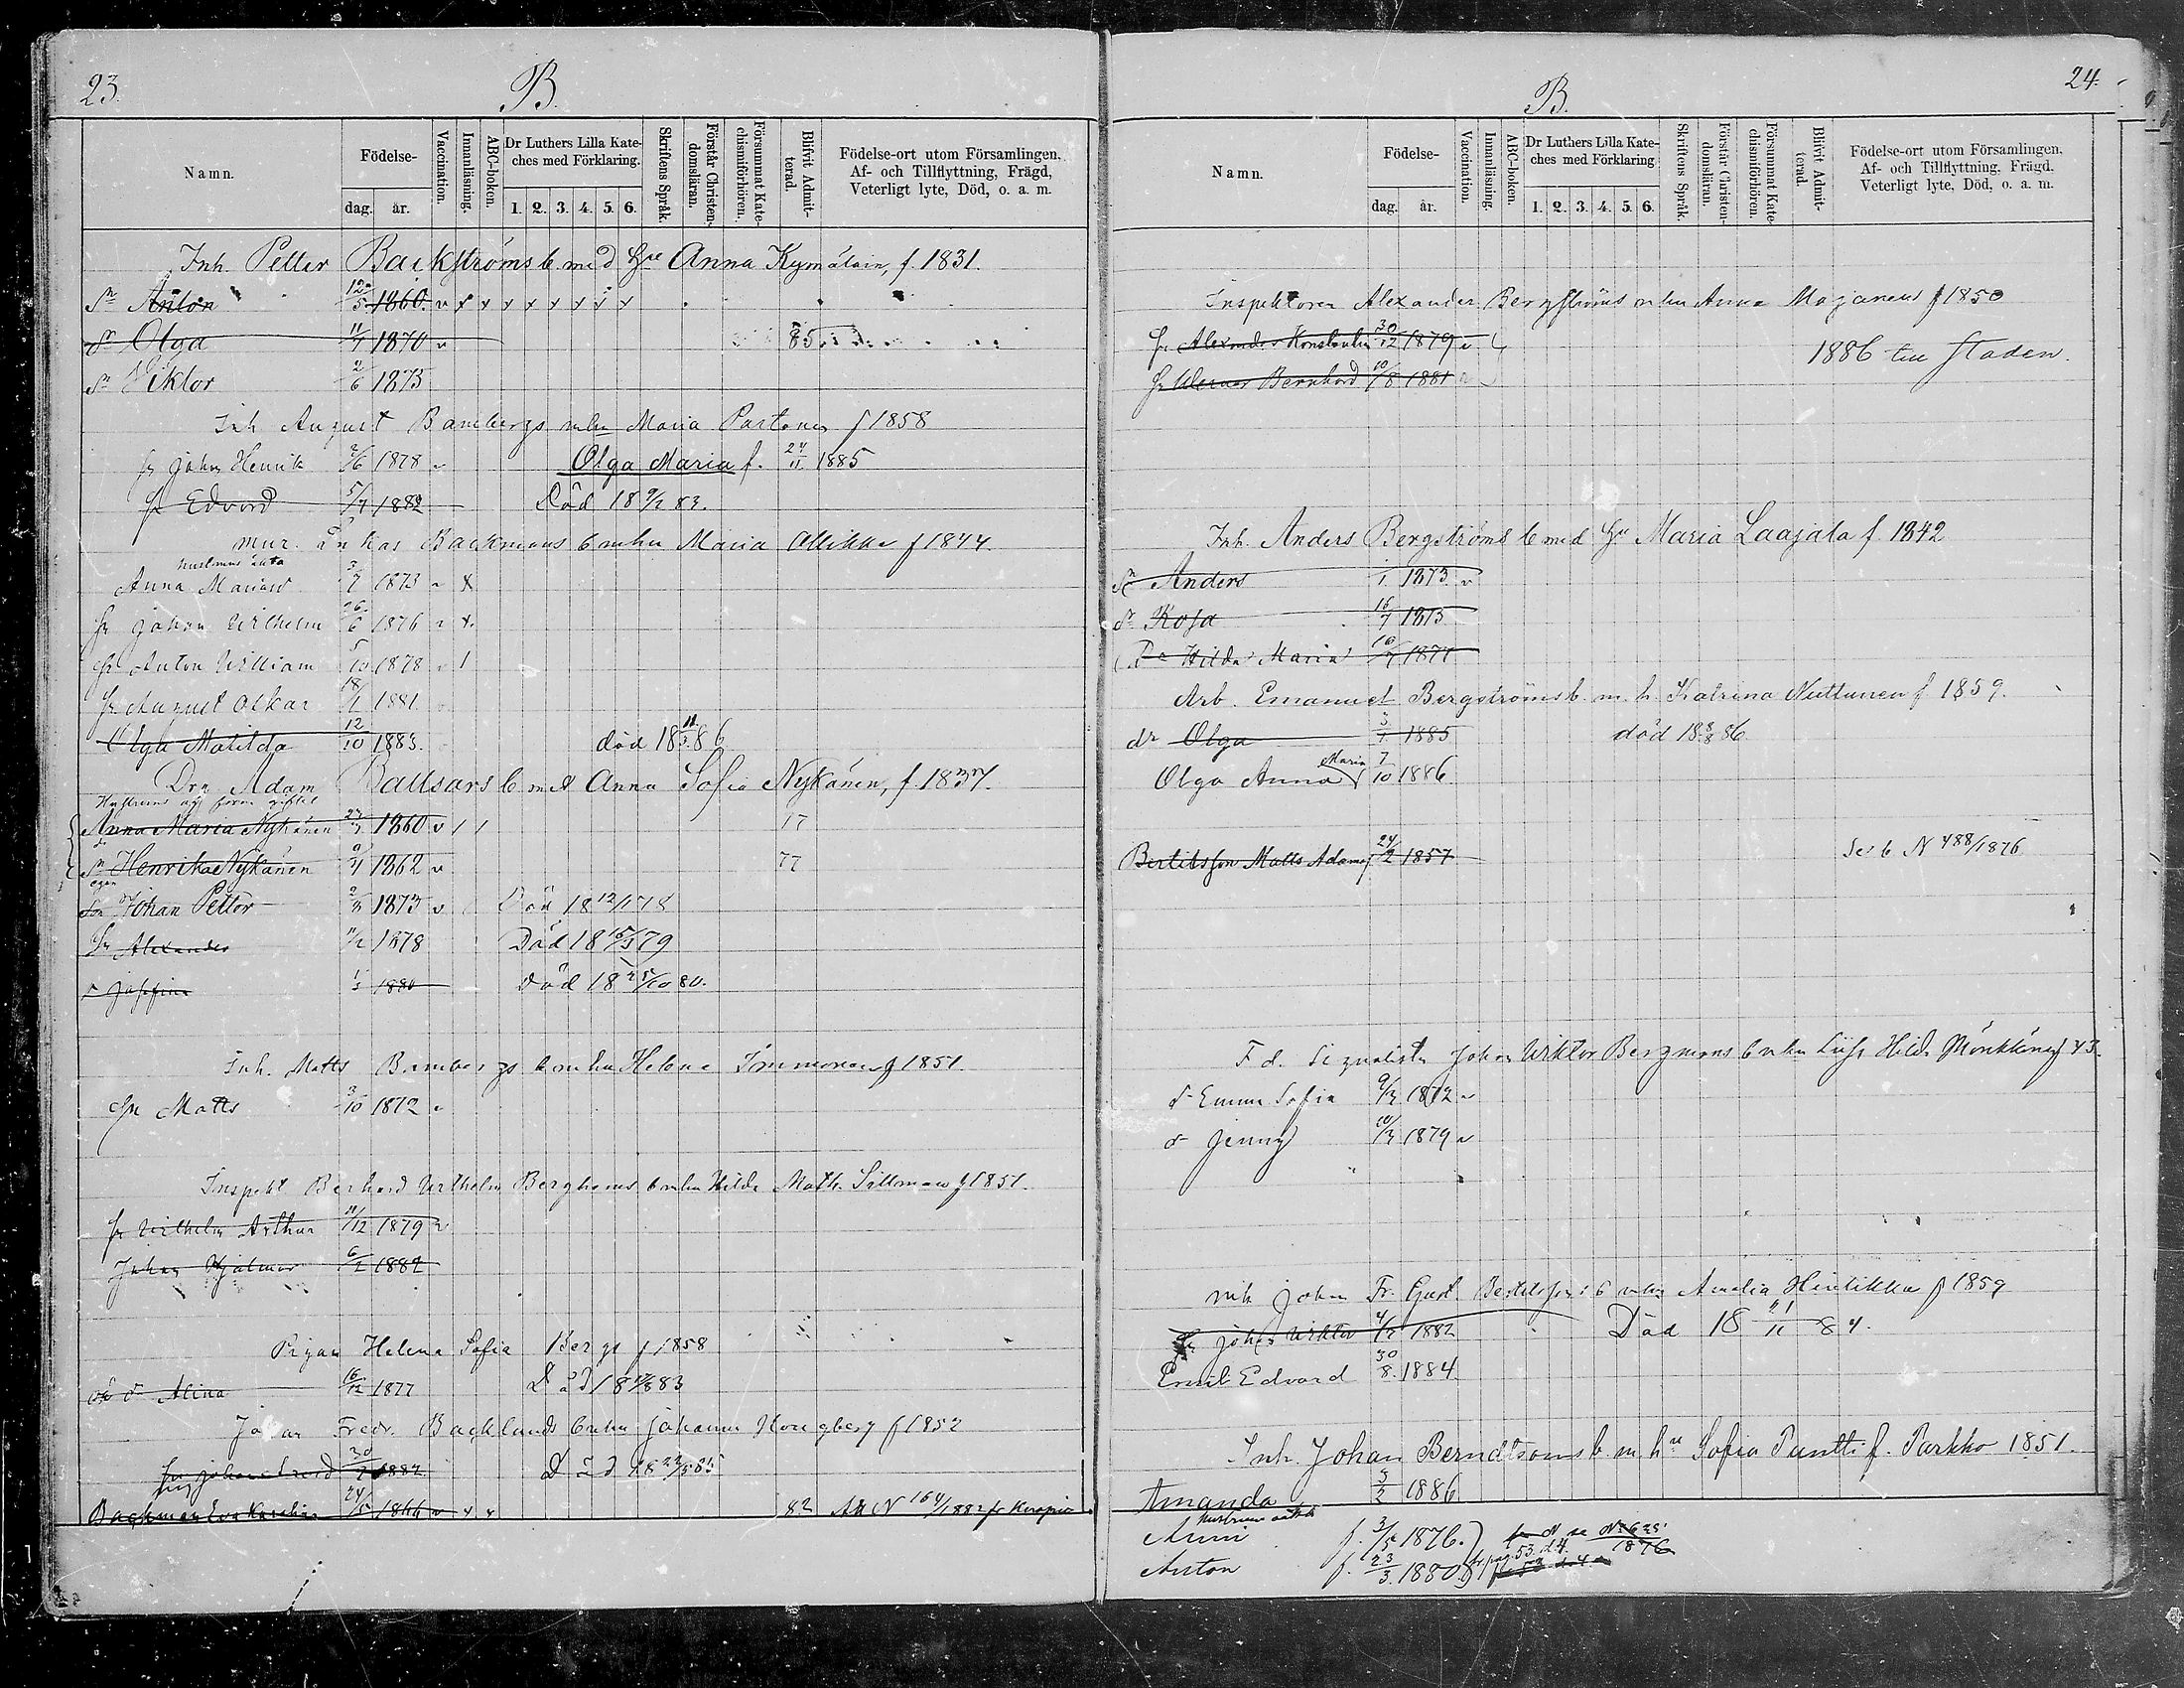 23.
B.
Namn.
Födelse-
dag. år.
Vaccination.
Innanläsning.
ABC-boken.
Dr Luthers Lilla Kate-
ches med Förklaring.
1. 2. 3. 4. 5. 6.
Skriftens Språk.
Förstår Christen-
domsläran.
Försummat Kate-
chismiförhören.
Blifvit Admit-
terad.
Födelse-ort utom Församlingen,
Af- och Tillflyttning, Frägd,
Veterligt lyte, Död, o. a. m.
Inh. Petter Backströms b. med Anna f. 1831.
Sn Anton 12/5 1860. v x x x x x x x x
dr Olga 11/7 1870 v 85
Sn Viktor 2/6 1873
Inh August Bambergs mhu Maria Partanen f 1858
Johan Henrik 2/6 1878 v Olga Maria f. 24/11 1885
Edvard 5/7 1882 Död 18 9/2 83.
mur. änkas Backmans b mhu Maria Ollikka f 1844.
hustruns äkta
Anna Maria 3/7 1873 v x
Johan Wilhelm 26/6 1876 v x.
Anton William 5/10 1878 v 1
August Oskar 18/1 1881
Olga Matilda 12/10 1883. död 18 11/3 86
Drg Adam b med Anna Sofia Nykänen, f. 1837.
Anna Maria Nykänen 1860 v / / 17
Henrika Nykänen 1862 v 77
egen
Son Johan Petter 2/3 1873 v Död 18 12/1 78
Alexander 11/2 1878 Död 18 15/3 79
Josefina 1/3 1880 Död 18 25/10 80.
Inh. Matts Bambergs b mhu Helena Immonen f 1851.
Matts 3/10 1872 v
Inspekt Berhard Wilhelm Berghems b mhu Hilda Math. Sillman f 1851.
Wilhelm Arthur 11/12 1879 v
Johan Hjalmar 6/2 1882
Pigan Helena Sofia Bergs f 1858
oä d Alina 16/12 1877 Död 18 83
Johan Fredr. Backlunds b mhu Johanna f 1852
Johan 30/7 1882 Död 18 22/5 85
Backman Eva Karolina 24/5 1866 v x x 82 Att N 164/1882 fr Kuopio
24.
B.
Namn.
Födelse-
dag. år.
Vaccination.
Innanläsning.
ABC-boken.
Dr Luthers Lilla Kate-
ches med Förklaring
1. 2. 3. 4. 5. 6.
Skriftens Språk.
Förstår Christen-
domsläran.
Försummat Kate-
chismiförhören.
Blifvit Admit-
terad.
Födelse-ort utom Församlingen,
Af- och Tillflyttning, Frägd,
Veterligt lyte, Död, o. a. m.
Inspektoren Alexander Bergströms mhu Anna Mojanen f 1850
Alexander Konstantin 30/12 1879 v
1886 till staden.
Werner Bernhard 10/8 1881 v
Inh. Anders Bergströms b med Hu Maria Laajala f 1842
Sn Anders 1/1 1873 v
dr Rosa 16/7 1875
Dr Hilda Maria 16/7 1877
Arb. Emanuel Bergströms b. m. h. Katrina Nuttunen f 1859.
dr Olga 3/1 1885 död 18 8/8 86
Olga Anna Maria 7/10 1886
Bertilsson Matts Adams 24/2 1857 Se b N 488/1876
F d. Signalisten Johan Wiktor Bergmans b mhu Hilda Mönkkönen f 43.
d Emma Sofia 9/3 1872 v
d Jenny 10/3 1879 v
Johan Fr. Gust Bertilssons b mhu Amalia Hintikka f 1859
Johan Wiktor 4/7 1882 Död 18 21/11 84.
Emil Edvard 30/8. 1884.
Inh. Johan Berndtsons b. m. hu Sofia Puntti f. Parkko 1851.
Amanda 5/2 1886
hustruns oäkta
Anni f. 3/5 1876.
Anton f. 23/3. 1880. fr. pag. 53. d. 4.
1876